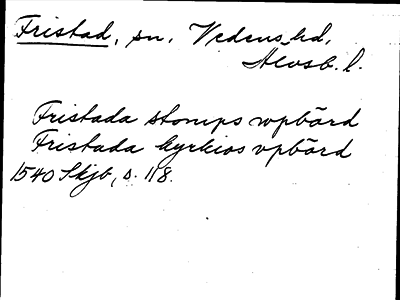 Fristad, sn, Vedens hd,
Älvsb. l.
Fristada stomps wpbörd
Fristada kyrkios vpbörd
1540 Skjb, s. 118.